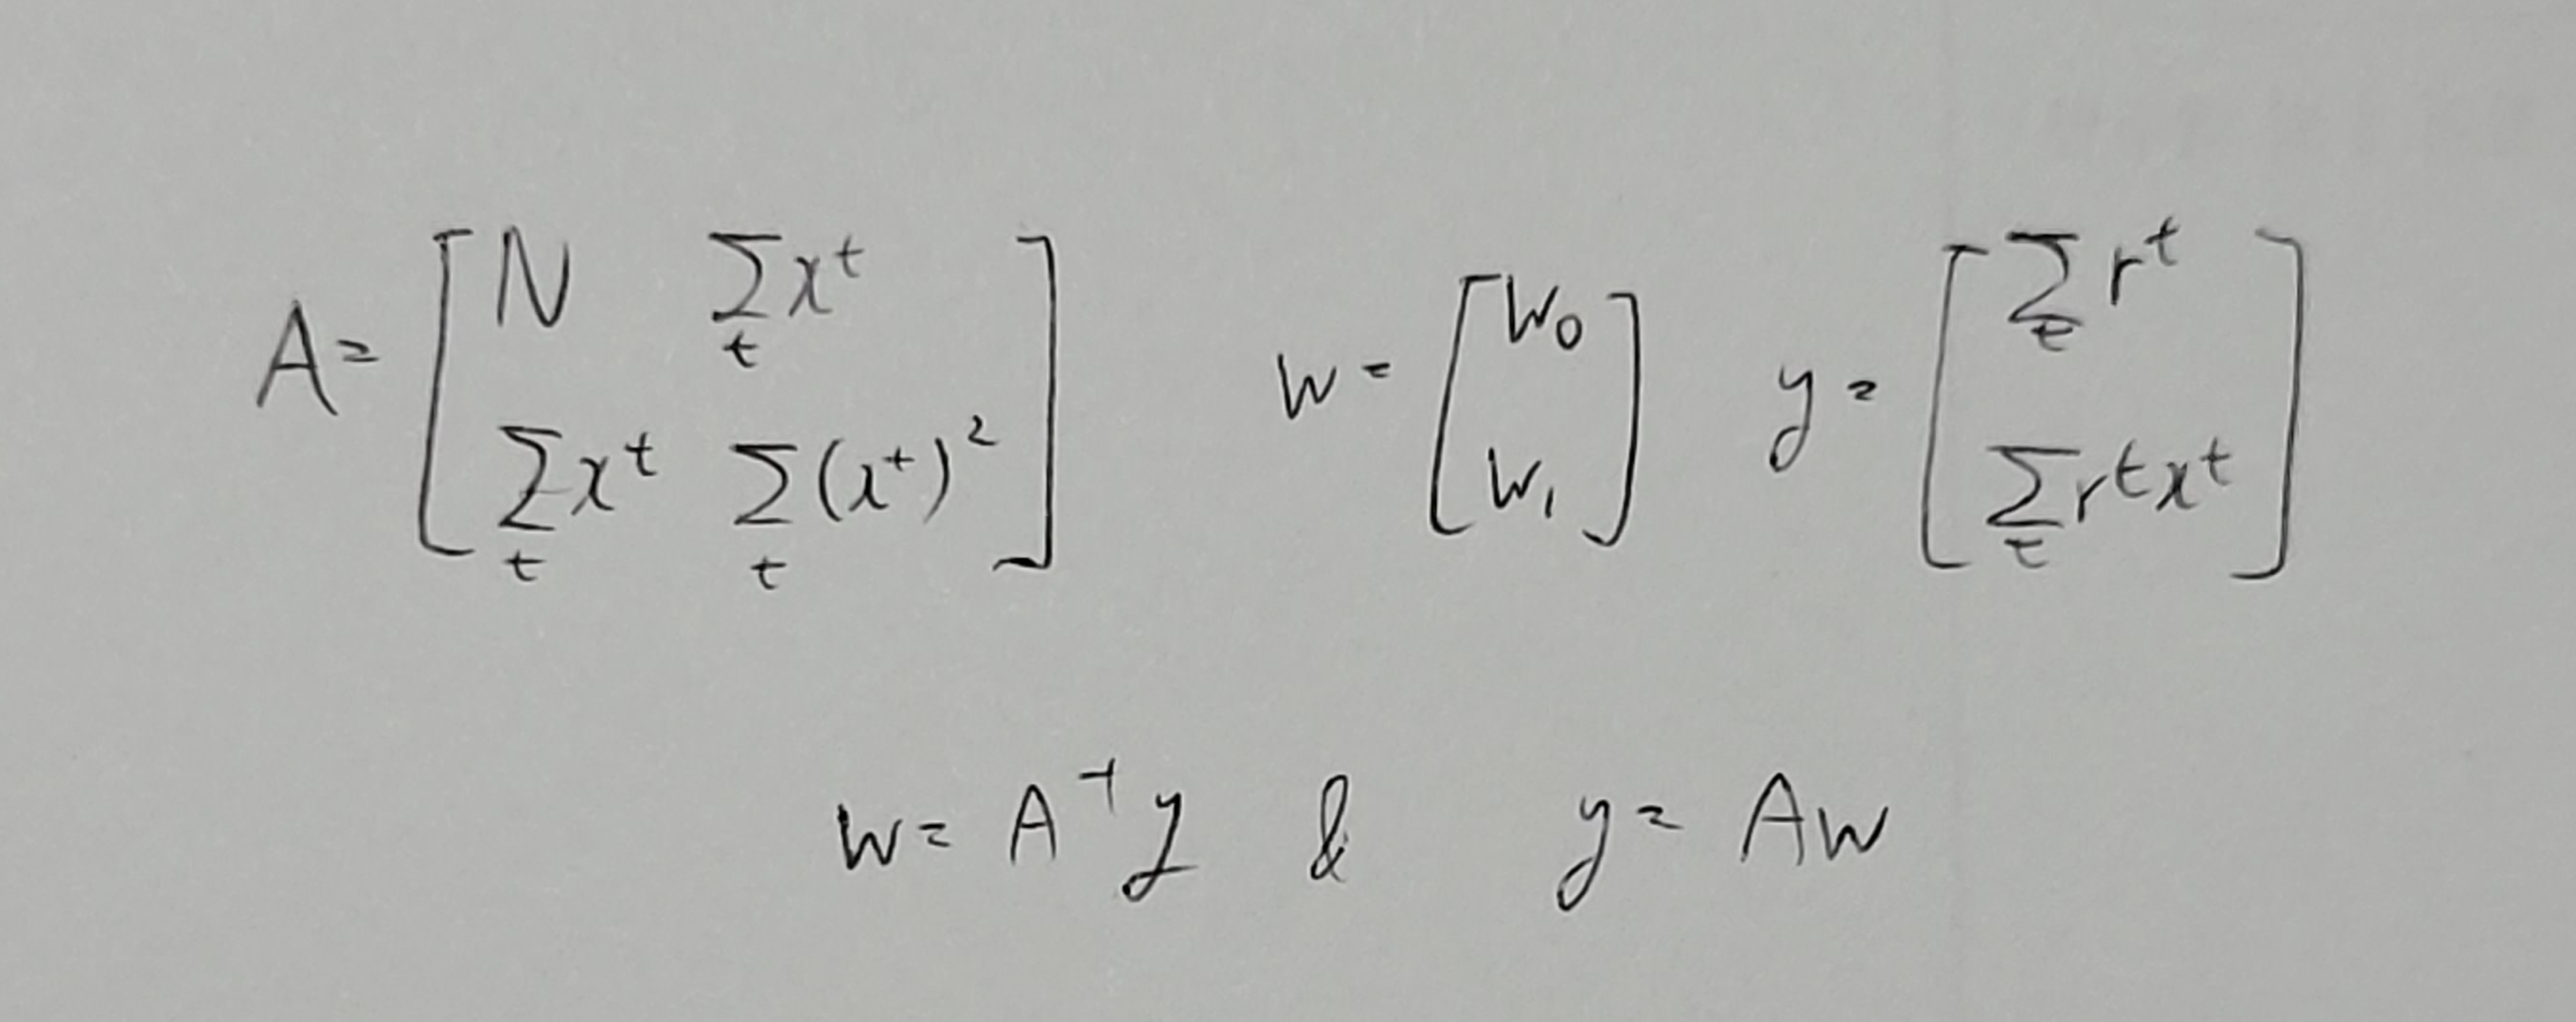 A = [ N ∑_t x^t ; ∑_t x^t ∑_t (x^t)^2 ] w = [ w_0 ; w_1 ] y = [ ∑_t r^t ; ∑_t r^t x^t ]
w = A^-1 y & y = Aw